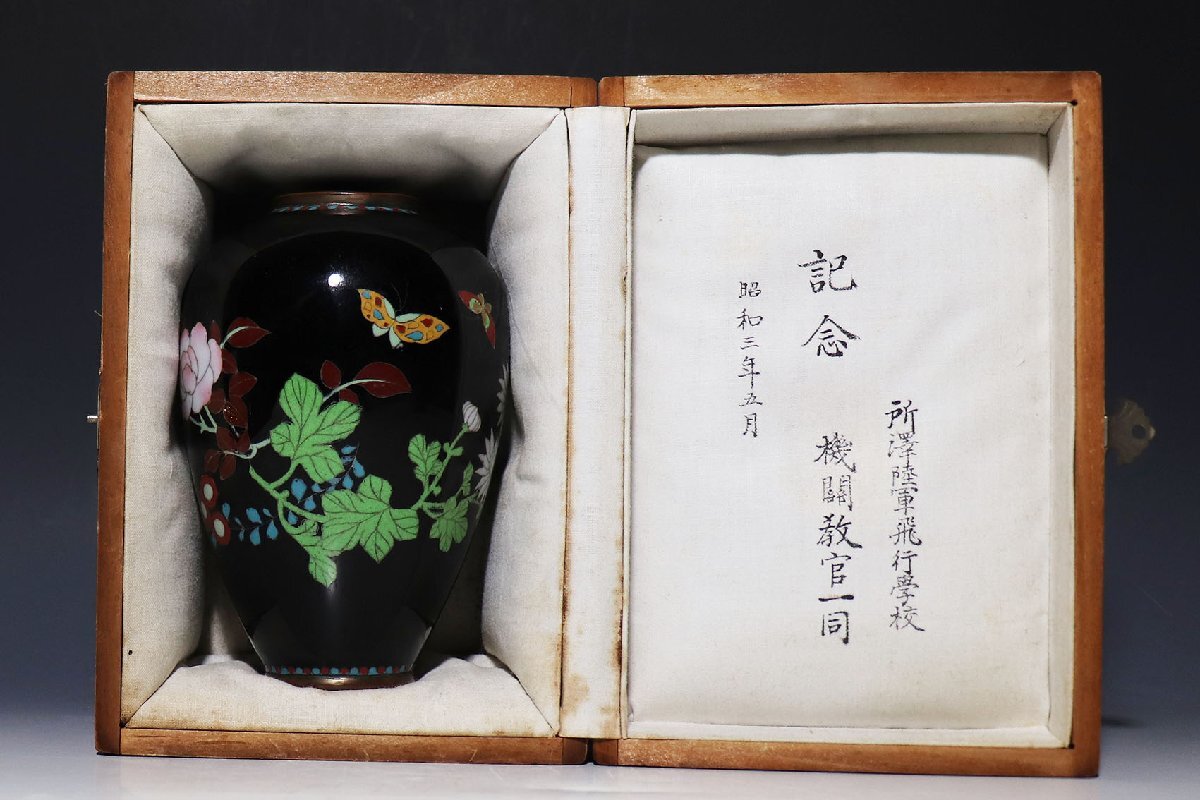 所澤陸軍飛行學校
記念
機關教官一同
昭和三年五月